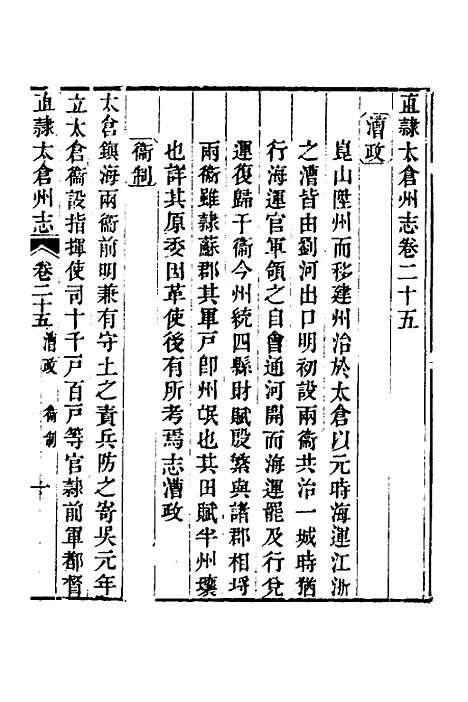 直隷太倉州志卷二十五
漕政
崑山陞州而移建州治於太倉以元時海運江浙
之漕皆由劉河出口明初設兩衞共治一城時猶
行海運官軍領之自會通河開而海運罷及行兌
運復歸于衞今州統四縣財賦殷繁與諸郡相埒
兩衞雖隷蘇郡其軍戸卽州氓也其田賦半州壤
也詳其原委因革使後有所考焉志漕政
衞制
太倉鎭海兩衞前明兼有守土之責兵防之寄吳元年
立太倉衞設指揮使司十千戸百戸等官隷前軍都督
直隷太倉州志 卷二十五 漕政 衞制 一